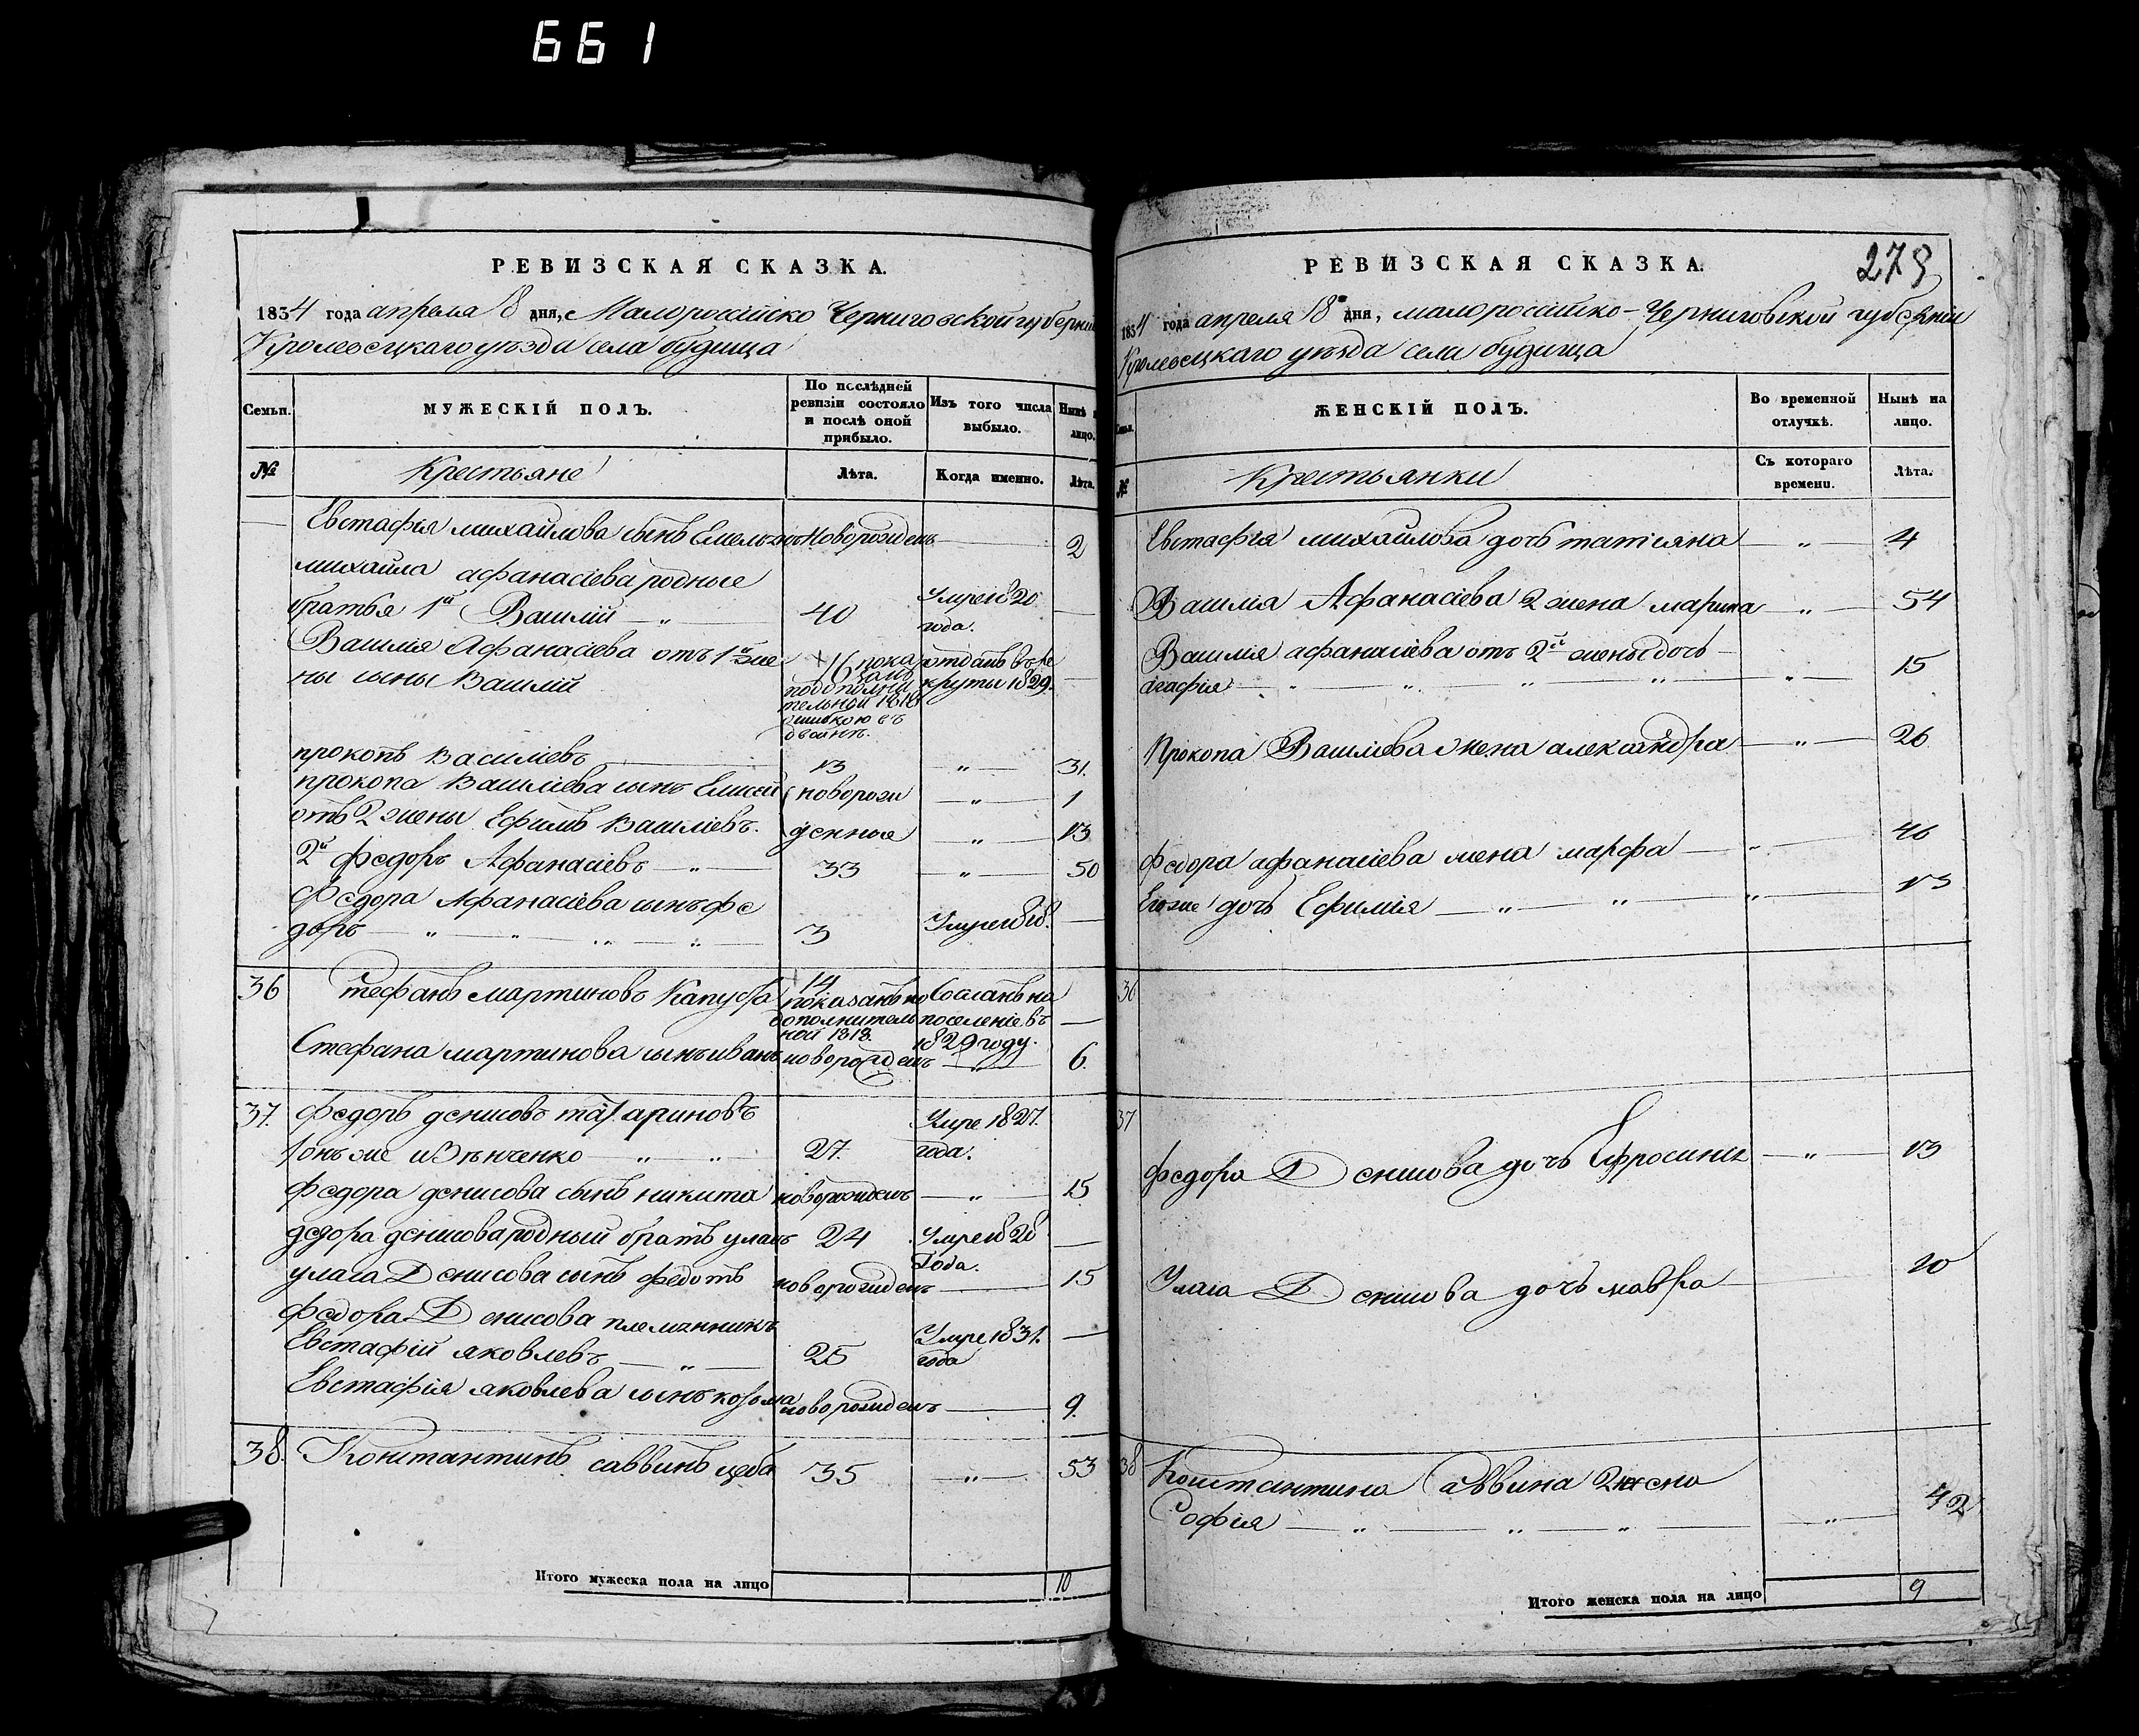 661
РЕВИЗСКАЯ СКАЗКА.
1834 года апреля 18 дня, Малороссійско Черниговской губерніи
Кролевецкаго уѣзда села будища
Семьи.
МУЖЕСКІЙ ПОЛЪ.
По послѣдней ревизіи состояло и послѣ оной прибыло.
Изъ того числа выбыло.
Нынѣ на лицо.
№
Крестьяне
Лѣта.
Когда именно.
Лѣта.
Евстафія михайлова сынъ Емельянъ новорожденъ 2
михаила афанасіева родные
братья 1й Василій — „ — 40 Умре 1820 года. —
Василія Афанасіева отъ 1й же
ны сыны Василій 16 показанъ по дополнительной 1818 ошибкою въ двойнѣ. отданъ въ рекруты 1829. —
прокопъ Василіевъ 13 „ 31.
прокопа Василіева сынъ Елисей новорож „ 1
отъ 2 жены Ефимъ Василіевъ. денные „ 13
2й федоръ Афанасіевъ — „ — 33 „ 50
Федора Афанасіева сынъ фе
доръ — „ „ „ „ 3 Умре 1818. —
36 Стефанъ мартиновъ Капуста 14 показанъ по дополнительной 1818. Сосланъ на поселеніе въ 1829 году. —
Стефана мартинова сынъ иванъ новорожденъ „ 6.
37. федоръ денисовъ татариновъ
онъ же Умре 1827.
27. года.
федора денисова сынъ никита новорожденъ „ 15
федора денисова родный братъ уласъ 24 Умре 1828 года. —
уласа Денисова сынъ федотъ новорожденъ 15
федора Денисова племянникъ
Евстафій яковлевъ — „ — 25 Умре 1831. года —
Евстафія яковлева сынъ козьма новорожденъ 9.
38. Константинъ саввинъ цеба 35 „ 53
Итого мужеска пола на лицо 10
РЕВИЗСКАЯ СКАЗКА.
279
1834 года апреля 18 дня, малороссійско-Черниговской губерніи
Кролевецкаго уѣзда села будища
ЖЕНСКІЙ ПОЛЪ.
Во временной отлучкѣ.
Нынѣ на лицо.
№
Крестьянки
Съ котораго времени.
Лѣта.
Евстафія михайлова дочь татіяна — „ — 4
Василія Афанасіева 2 жена марина — „ — 54
Василія афанасіева отъ 2й жены дочь —
агафія — „ „ „ „ „ 15
Прокопа Василіева жена александра — „ — 26
федора афанасіева жена марфа — „ — 46
Егоже дочь Ефимія — „ „ „ — 13
36
37
федора Денисова дочь Ефросинія — „ — 13
Уласа Денисова дочь мавра 10
38 Константина Саввина 2 жена
Софія — „ — „ — „ — „ — 42
Итого женска пола на лицо 9